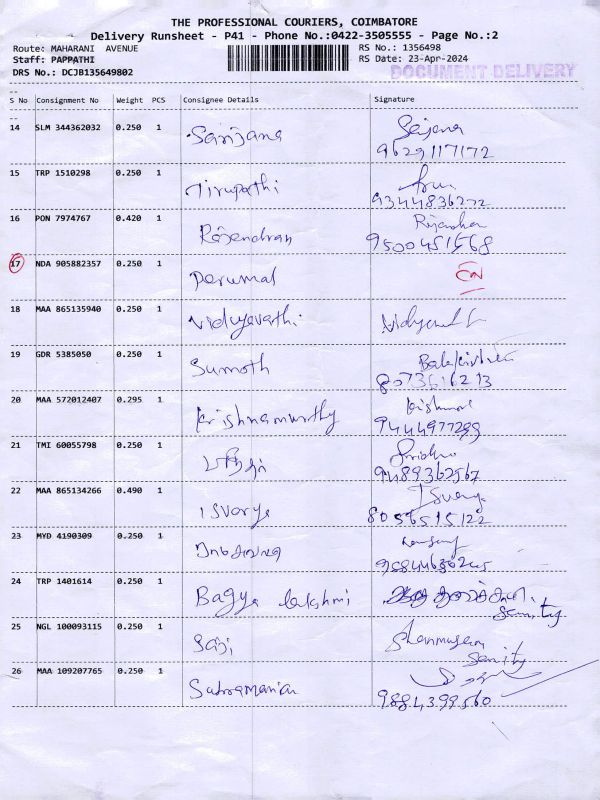 THE PROFESSIONAL COURIERS, COIMBATORE
Delivery Runsheet - P41 - Phone No.:0422-3505555 - Page No.:2
Route: MAHARANI AVENUE RS No.: 1356498
Staff: PAPPATHI RS Date: 23-Apr-2024
DRS No.: DCJB135649802 DOCUMENT DELIVERY
S No Consignment No Weight PCS Consignee Details Signature
14 SLM 344362032 0.250 1 Sanjana Sanjana
9629117172
15 TRP 1510298 0.250 1 Tirupathi
9344836272
16 PON 7974767 0.420 1 Rajendran Rajendran
9500451568
17 NDA 905882357 0.250 1 Perumal CN
18 MAA 865135940 0.250 1 Vidyavathi
19 GDR 5385050 0.250 1 Sumoth
8073616213
20 MAA 572012407 0.295 1 Krishnamurthy
9444977299
21 TMI 60055798 0.250 1
9489362567
22 MAA 865134266 0.490 1 Isvorya
8056515122
23 MYD 4190309 0.250 1
24 TRP 1401614 0.250 1 Bagya lakshmi
25 NGL 100093115 0.250 1 Saji Shanmugam
26 MAA 109207765 0.250 1 Subramanian
9884399560